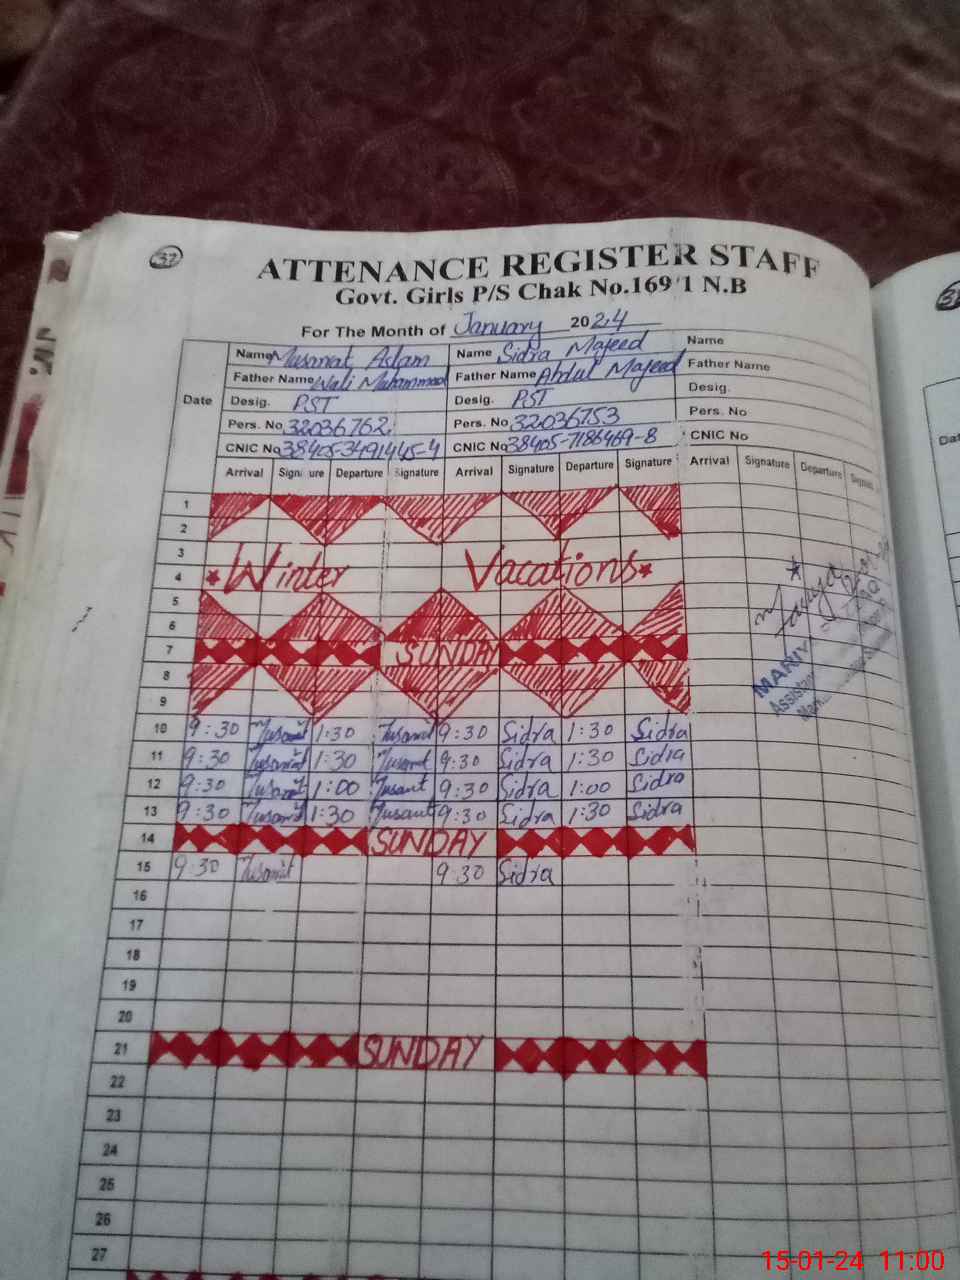 37
ATTENANCE REGISTER STAFF
Govt. Girls P/S Chak No.169/1 N.B
For The Month of January 2024
Date Name Musarrat Aslam Name Sidra Majeed Name
Father Name Wali Muhammad Father Name Abdul Majeed Father Name
Desig. PST Desig. PST Desig.
Pers. No 32036762 Pers. No 32036753 Pers. No
CNIC No 38405-3491445-4 CNIC No 38405-7186469-8 CNIC No
Arrival Signature Departure Signature Arrival Signature Departure Signature Arrival Signature Departure
1
2
3
4 Winter Vacations
5
6
7 SUNDAY
8
9
10 9:30 1:30 9:30 Sidra 1:30 Sidra
11 9:30 1:30 9:30 Sidra 1:30 Sidra
12 9:30 1:00 9:30 Sidra 1:00 Sidra
13 9:30 1:30 9:30 Sidra 1:30 Sidra
14 SUNDAY
15 9:30 9:30 Sidra
16
17
18
19
20
21 SUNDAY
22
23
24
25
26
27
15-01-24 11:00